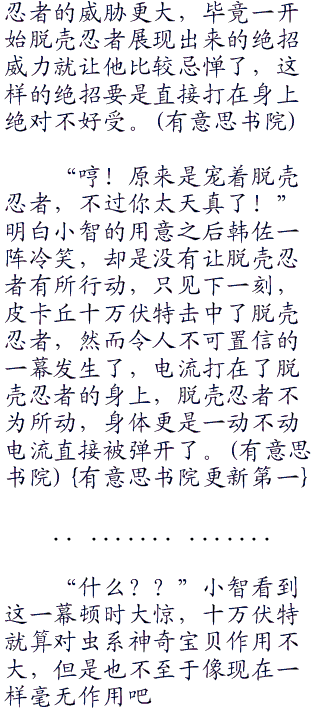 忍者的威胁更大，毕竟一开
始脱壳忍者展现出来的绝招
威力就让他比较忌惮了，这
样的绝招要是直接打在身上
绝对不好受。(有意思书院)
“哼！原来是宠着脱壳
忍者，不过你太天真了！”
明白小智的用意之后韩佐一
阵冷笑，却是没有让脱壳忍
者有所行动，只见下一刻，
皮卡丘十万伏特击中了脱壳
忍者，然而令人不可置信的
一幕发生了，电流打在了脱
壳忍者的身上，脱壳忍者不
为所动，身体更是一动不动
电流直接被弹开了。(有意思
书院) {有意思书院更新第一}
·· ······· ·······
“什么？？”小智看到
这一幕顿时大惊，十万伏特
就算对虫系神奇宝贝作用不
大，但是也不至于像现在一
样毫无作用吧